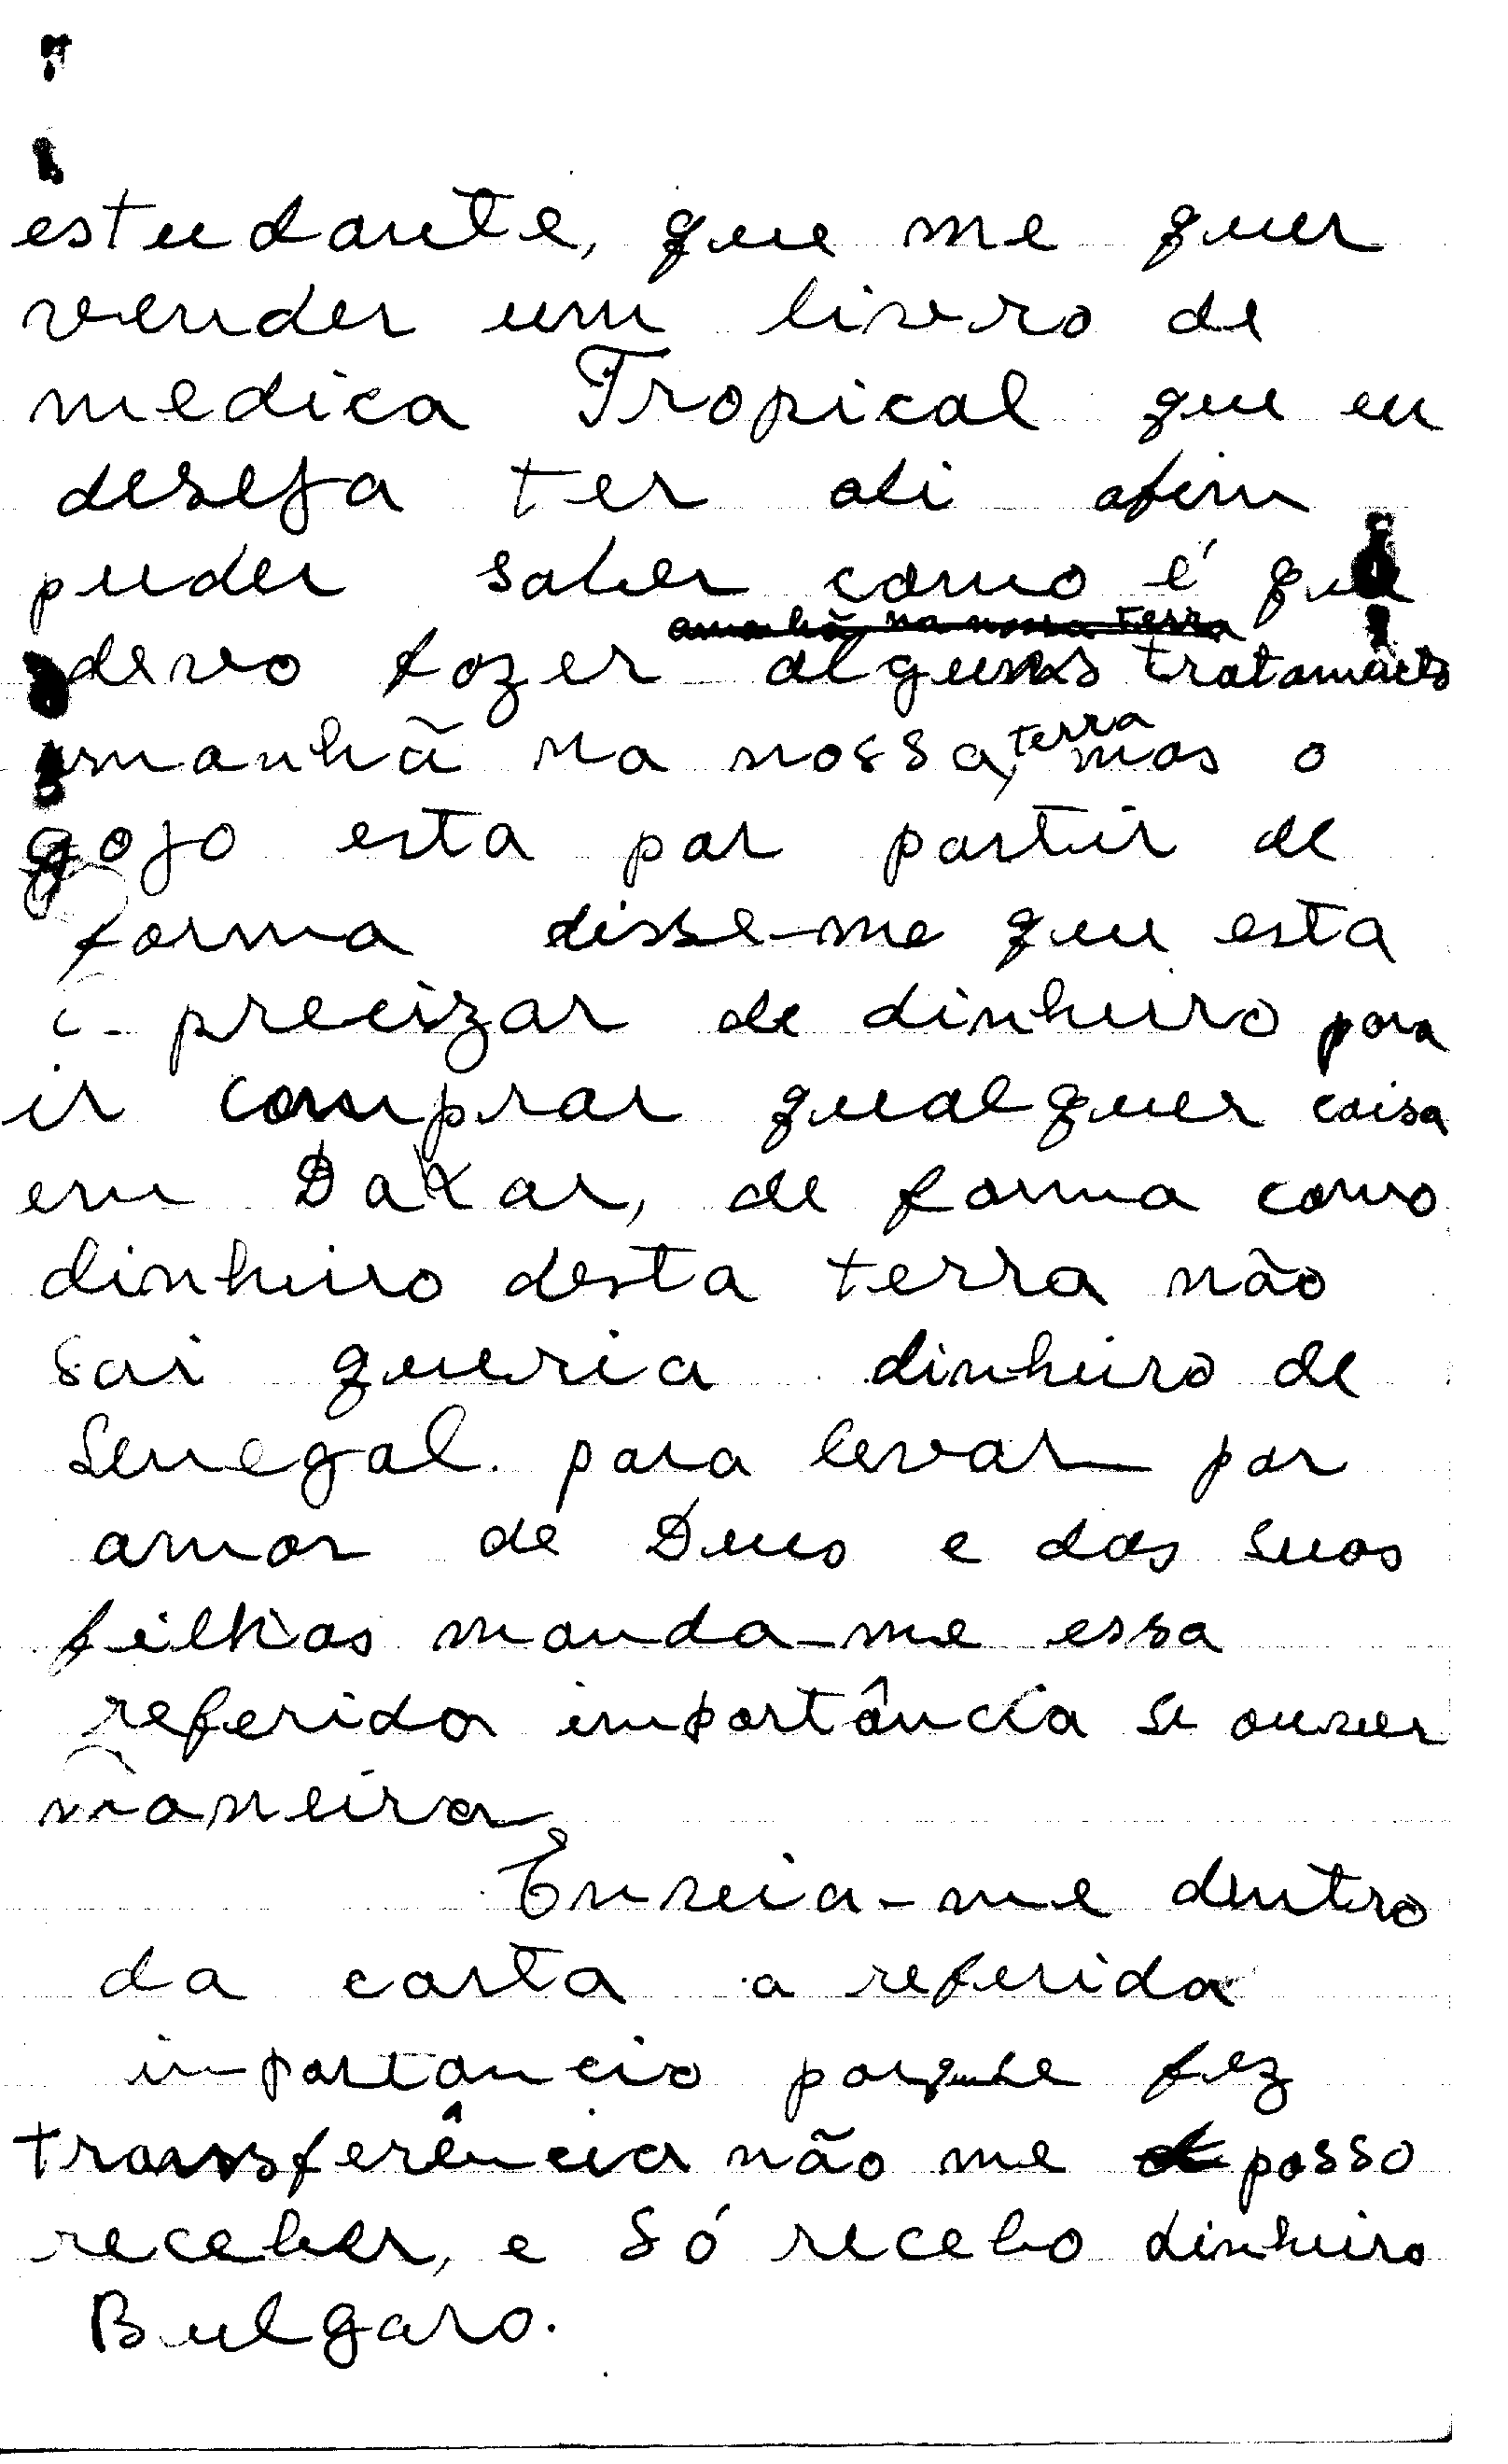 estudante, que me quer
vender um livro de
medica Tropical que eu
deseja ter ali afim
puder saber como é que
amanhã na nossa terra
devo fazer alguns tratamentos
amanhã na nossa, terra mas o
gajo esta por partir de
forma disse-me que esta
precizar de dinheiro para
ir comprar qualquer coisa
em Dakar, de forma como
dinheiro desta terra não
sai queria dinheiro de
Senegal para levar por
amor de Deus e das suas
filhas manda-me essa
referida importância se ouver
maneira
Envia-me dentro
da carta a referida
importancia porque fez
transferência não me posso
receber, e só recebo dinheiro
Bulgaro.